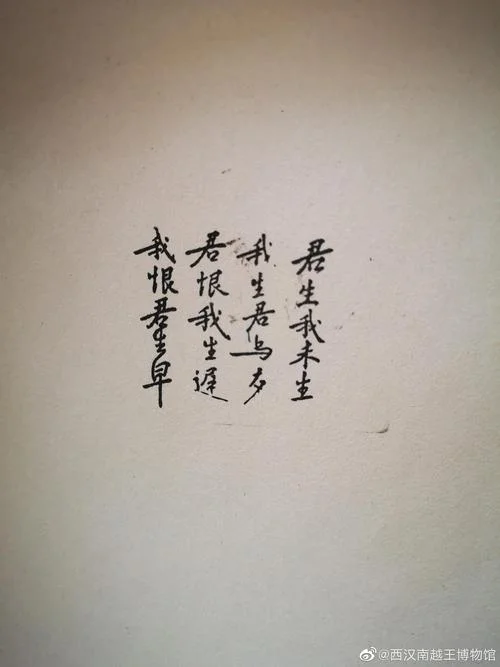 君生我未生
我生君老
君恨我生遲
我恨君生早
@西汉南越王博物馆